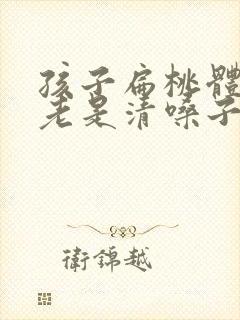 孩子扁桃體
老是清嗓子
衛錦越